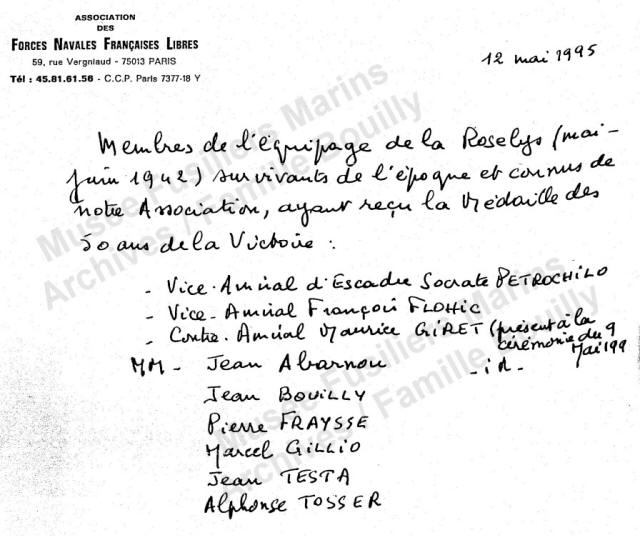 ASSOCIATION
DES
FORCES NAVALES FRANÇAISES LIBRES
59, rue Vergniaud - 75013 PARIS
Tél : 45.81.61.56 - C.C.P. Paris 7377-18 Y
12 mai 1995
Membres de l'équipage de la Roselys (mai-
juin 1942) survivants de l'époque et connus de
notre Association, ayant reçu la Médaille des
50 ans de la Victoire :
- Vice-Amiral d'Escadre Socrate PETROCHILO
- Vice-Amiral François FLOHIC
- Contre-Amiral Maurice GIRET (présent à la
cérémonie du 9
Mai 199
MM - Jean Abarnou - id -
Jean BOUILLY
Pierre FRAYSSE
Marcel GILLIO
Jean TESTA
Alphonse TOSSER
Musée Fusiliers Marins
Archives / Famille Bouilly
Musée Fusiliers Marins
Archives / Famille Bouilly